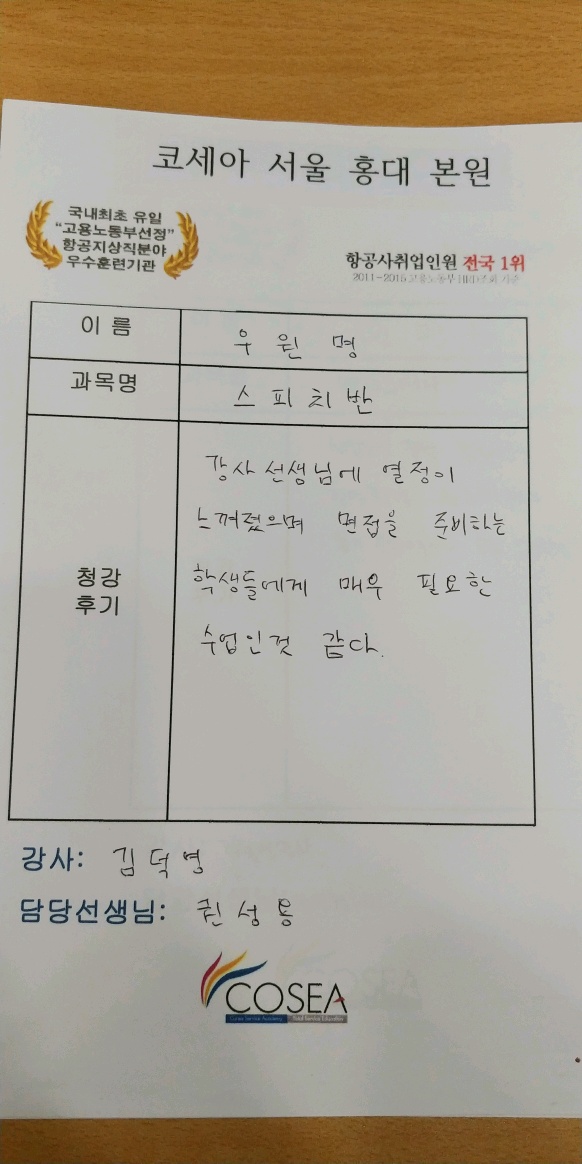 코세아 서울 홍대 본원
국내최초 유일
"고용노동부선정"
항공지상직분야
우수훈련기관
항공사취업인원 전국 1위
2011~2015 고용노동부 HRD조회 기준
이 름
우 원 명
과목명
스 피 치 반
청강
후기
강사선생님에 열정이
느껴졌으며 면접을 준비하는
학생들에게 매우 필요한
수업인것 같다.
강사: 김덕영
담당선생님: 권성용
COSEA
Corea Service Academy Total Service Education